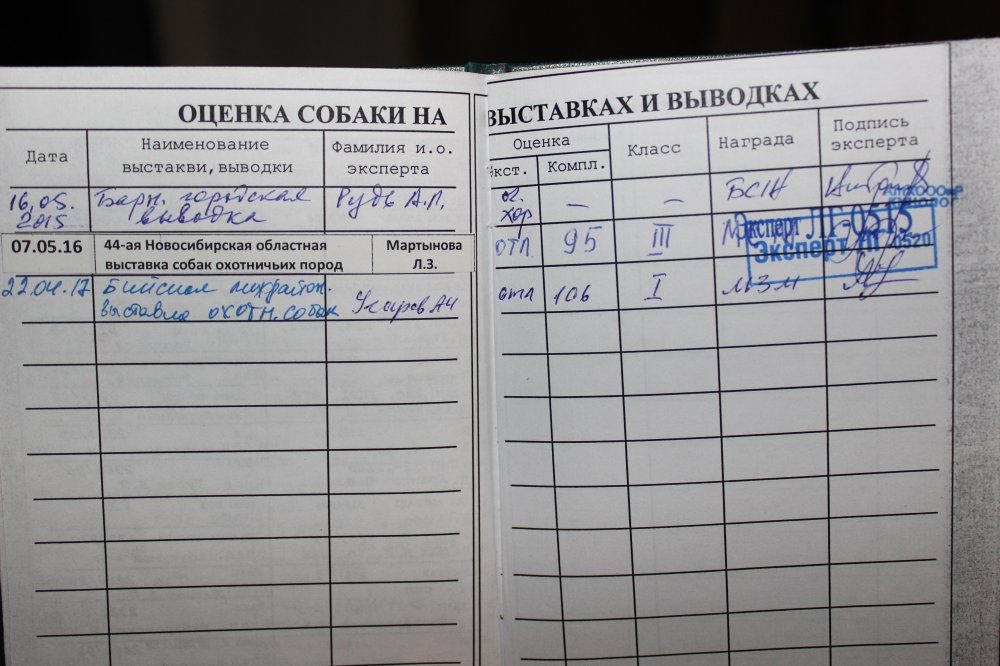 ОЦЕНКА СОБАКИ НА ВЫСТАВКАХ И ВЫВОДКАХ
Дата Наименование выстакви, выводки Фамилия и.о. эксперта Оценка Экст. Компл. Класс Награда Подпись эксперта
16.05. 2015 Барн. городская выводка Рудь А.П. оч. хор – – БСН
07.05.16 44-ая Новосибирская областная выставка собак охотничьих пород Мартынова Л.З. ОТЛ 95 III
Эксперт ЛГ-0515
Эксперт ЛГ 0520
22.04.17 Бийская межрайон. выставка охотн. собак отл 106 I МЗМ